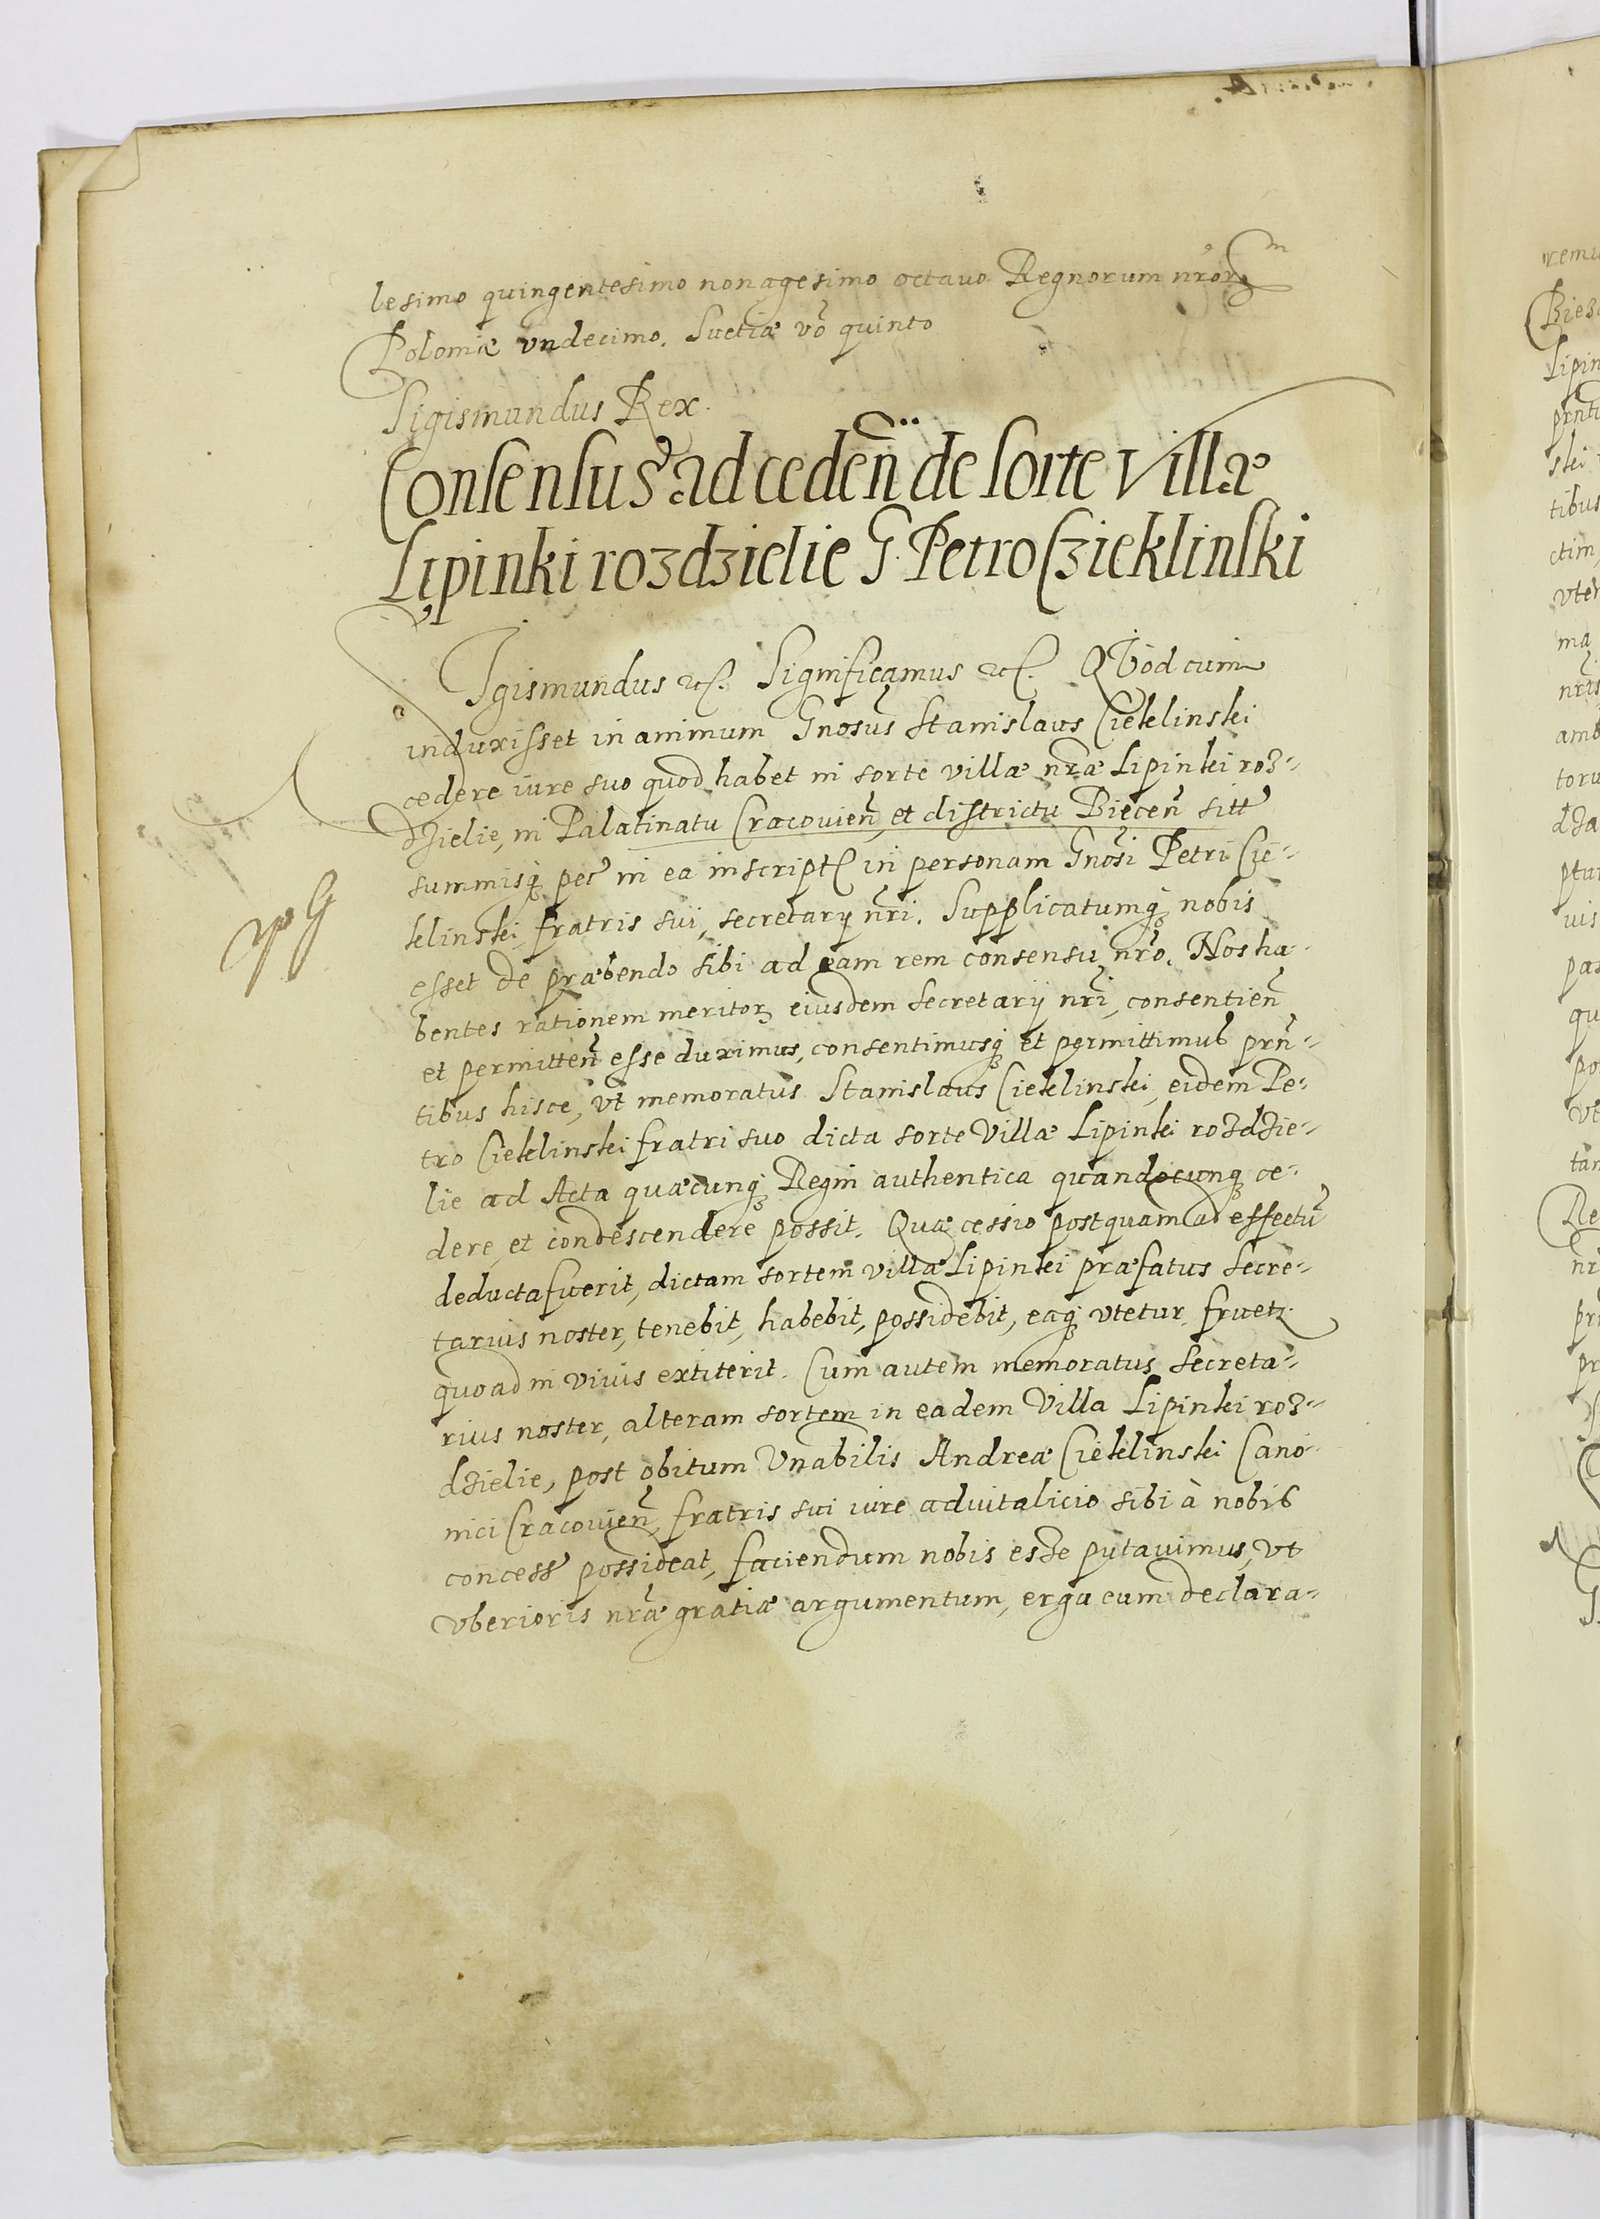 lesimo quingentesimo nonagesimo octavo Regnorum nror
Poloniæ vndecimo. Suetiæ vo quinto
Sigismundus Rex.
Consensus ad ceden de sorte Villæ
Lipinki rozdzielie G. Petro Czieklinski
Sigismundus etc. Significamus etc. Quod cum
induxisset in animum Gnosus Stanislaus Cieklinski
cedere iure suo quod habet in sorte villæ nræ Lipinki roz-
dzielie, in Palatinatu Cracouien, et districtu Biecen sitt
summisq pec in ea inscript in personam Gnosi Petri Cie-
klinski fratris sui, secretarij nri. Supplicatumq nobis
esset de præbendo sibi ad eam rem consensu nro. Nos ha-
bentes rationem meritor eiusdem Secretarij nri, consentien
et permitten esse duximus, consentimusq et permittimus prn-
tibus hisce, vt memoratus Stanislaus Cieklinski, eidem Pe-
tro Cieklinski fratri suo dicta sorte Villæ Lipinki rozdzie-
lie ad Acta quæcunq Regni authentica quandocunq ce-
dere et condescendere possit. Quæ cessio postquam ad effectu
deducta fuerit, dictam sortem villæ Lipinki præfatus Secre-
tarius noster, tenebit, habebit, possidebit, eaq vtetur, fruetr
quoad in viuis extiterit. Cum autem memoratus Secreta-
rius noster, alteram sortem in eadem Villa Lipinki roz-
dzielie, post obitum Vnabilis Andreæ Cieklinski Cano-
nici Cracouien, fratris sui iure aduitalicio sibi à nobis
concess possideat, faciendum nobis esse putauimus, vt
vberioris nræ gratiæ argumentum, erga eum declara-